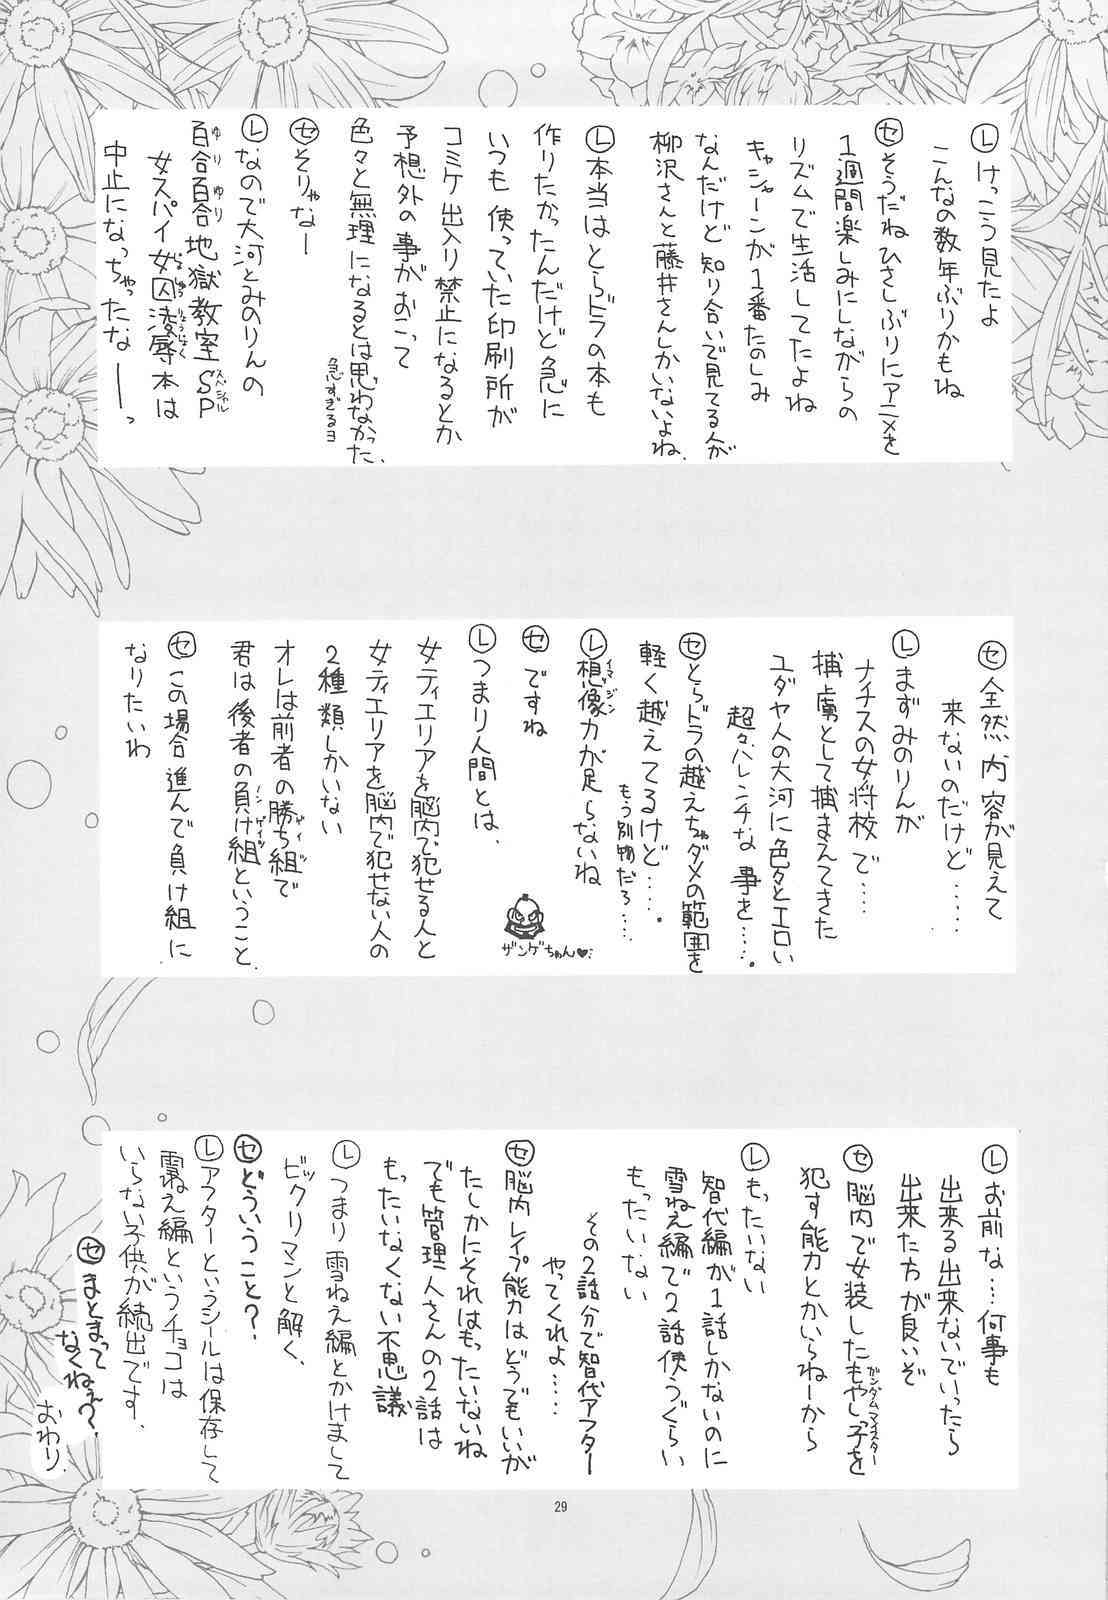 Ⓛけっこう見たよ
こんなの数年ぶりかもね
㋝そうだねひさしぶりにアニメを
1週間楽しみにしながらの
リズムで生活してたよね
キャシャーンが1番たのしみ
なんだけど知り合いで見てる人が
柳沢さんと藤井さんしかいないよね.
Ⓛ本当はとらドラの本も
作りたかったんだけど急に
いつも使っていた印刷所が
コミケ出入り禁止になるとか
予想外の事がおこって
色々と無理になるとは思わなかった.
急すぎるヨ
㋝そりゃなー
Ⓛなので大河とみのりんの
百合百合地獄教室SP
ゆりゆり
スペシャル
女スパイ女囚凌辱本は
じょしゅうりょうじょく
中止になっちゃったなーーっ
㋝全然内容が見えて
来ないのだけど....
Ⓛまずみのりんが
ナチスの女将校で....
捕虜として捕まえてきた
ユダヤ人の大河に色々とエロい
超々ハレンチな事を.....
㋝とらドラの越えちゃダメの範囲を
軽く越えてるけど.....
もう別物だろ....
Ⓛ想像力が足らないね
イマジン
㋝ですね
ザンゲちゃん♥
Ⓛつまり人間とは、
女ティエリアを脳内で犯せる人と
女ティエリアを脳内で犯せない人の
2種類しかいない
オレは前者の勝ち組で
ゲイツ
君は後者の負け組ということ.
ノンゲイツ
㋝この場合進んで負け組に
なりたいわ
Ⓛお前な...何事も
出来る出来ないでいったら
出来た方が良いぞ
㋝脳内で女装したもやしっ子を
ガンダムマイスター
犯す能力とかいらねーから
Ⓛもったいない
智代編が1話しかないのに
雪ねえ編で2話使うぐらい
もったいない
その2話分で智代アフター
やってくれよ....
㋝脳内レイプ能力はどうでもいいが
たしかにそれはもったいないね
でも管理人さんの2話は
もったいなくない不思議
Ⓛつまり雪ねえ編とかけまして
ビックリマンと解く、
㋝どういうこと?
Ⓛアフターというシールは保存して
雪ねえ編というチョコは
いらない子供が続出です.
㋝まとまって
なくねぇ?
おわり.
29